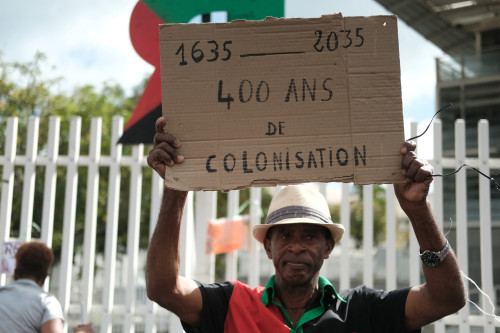 1635 — 2035
400 ANS
DE
COLONISATION